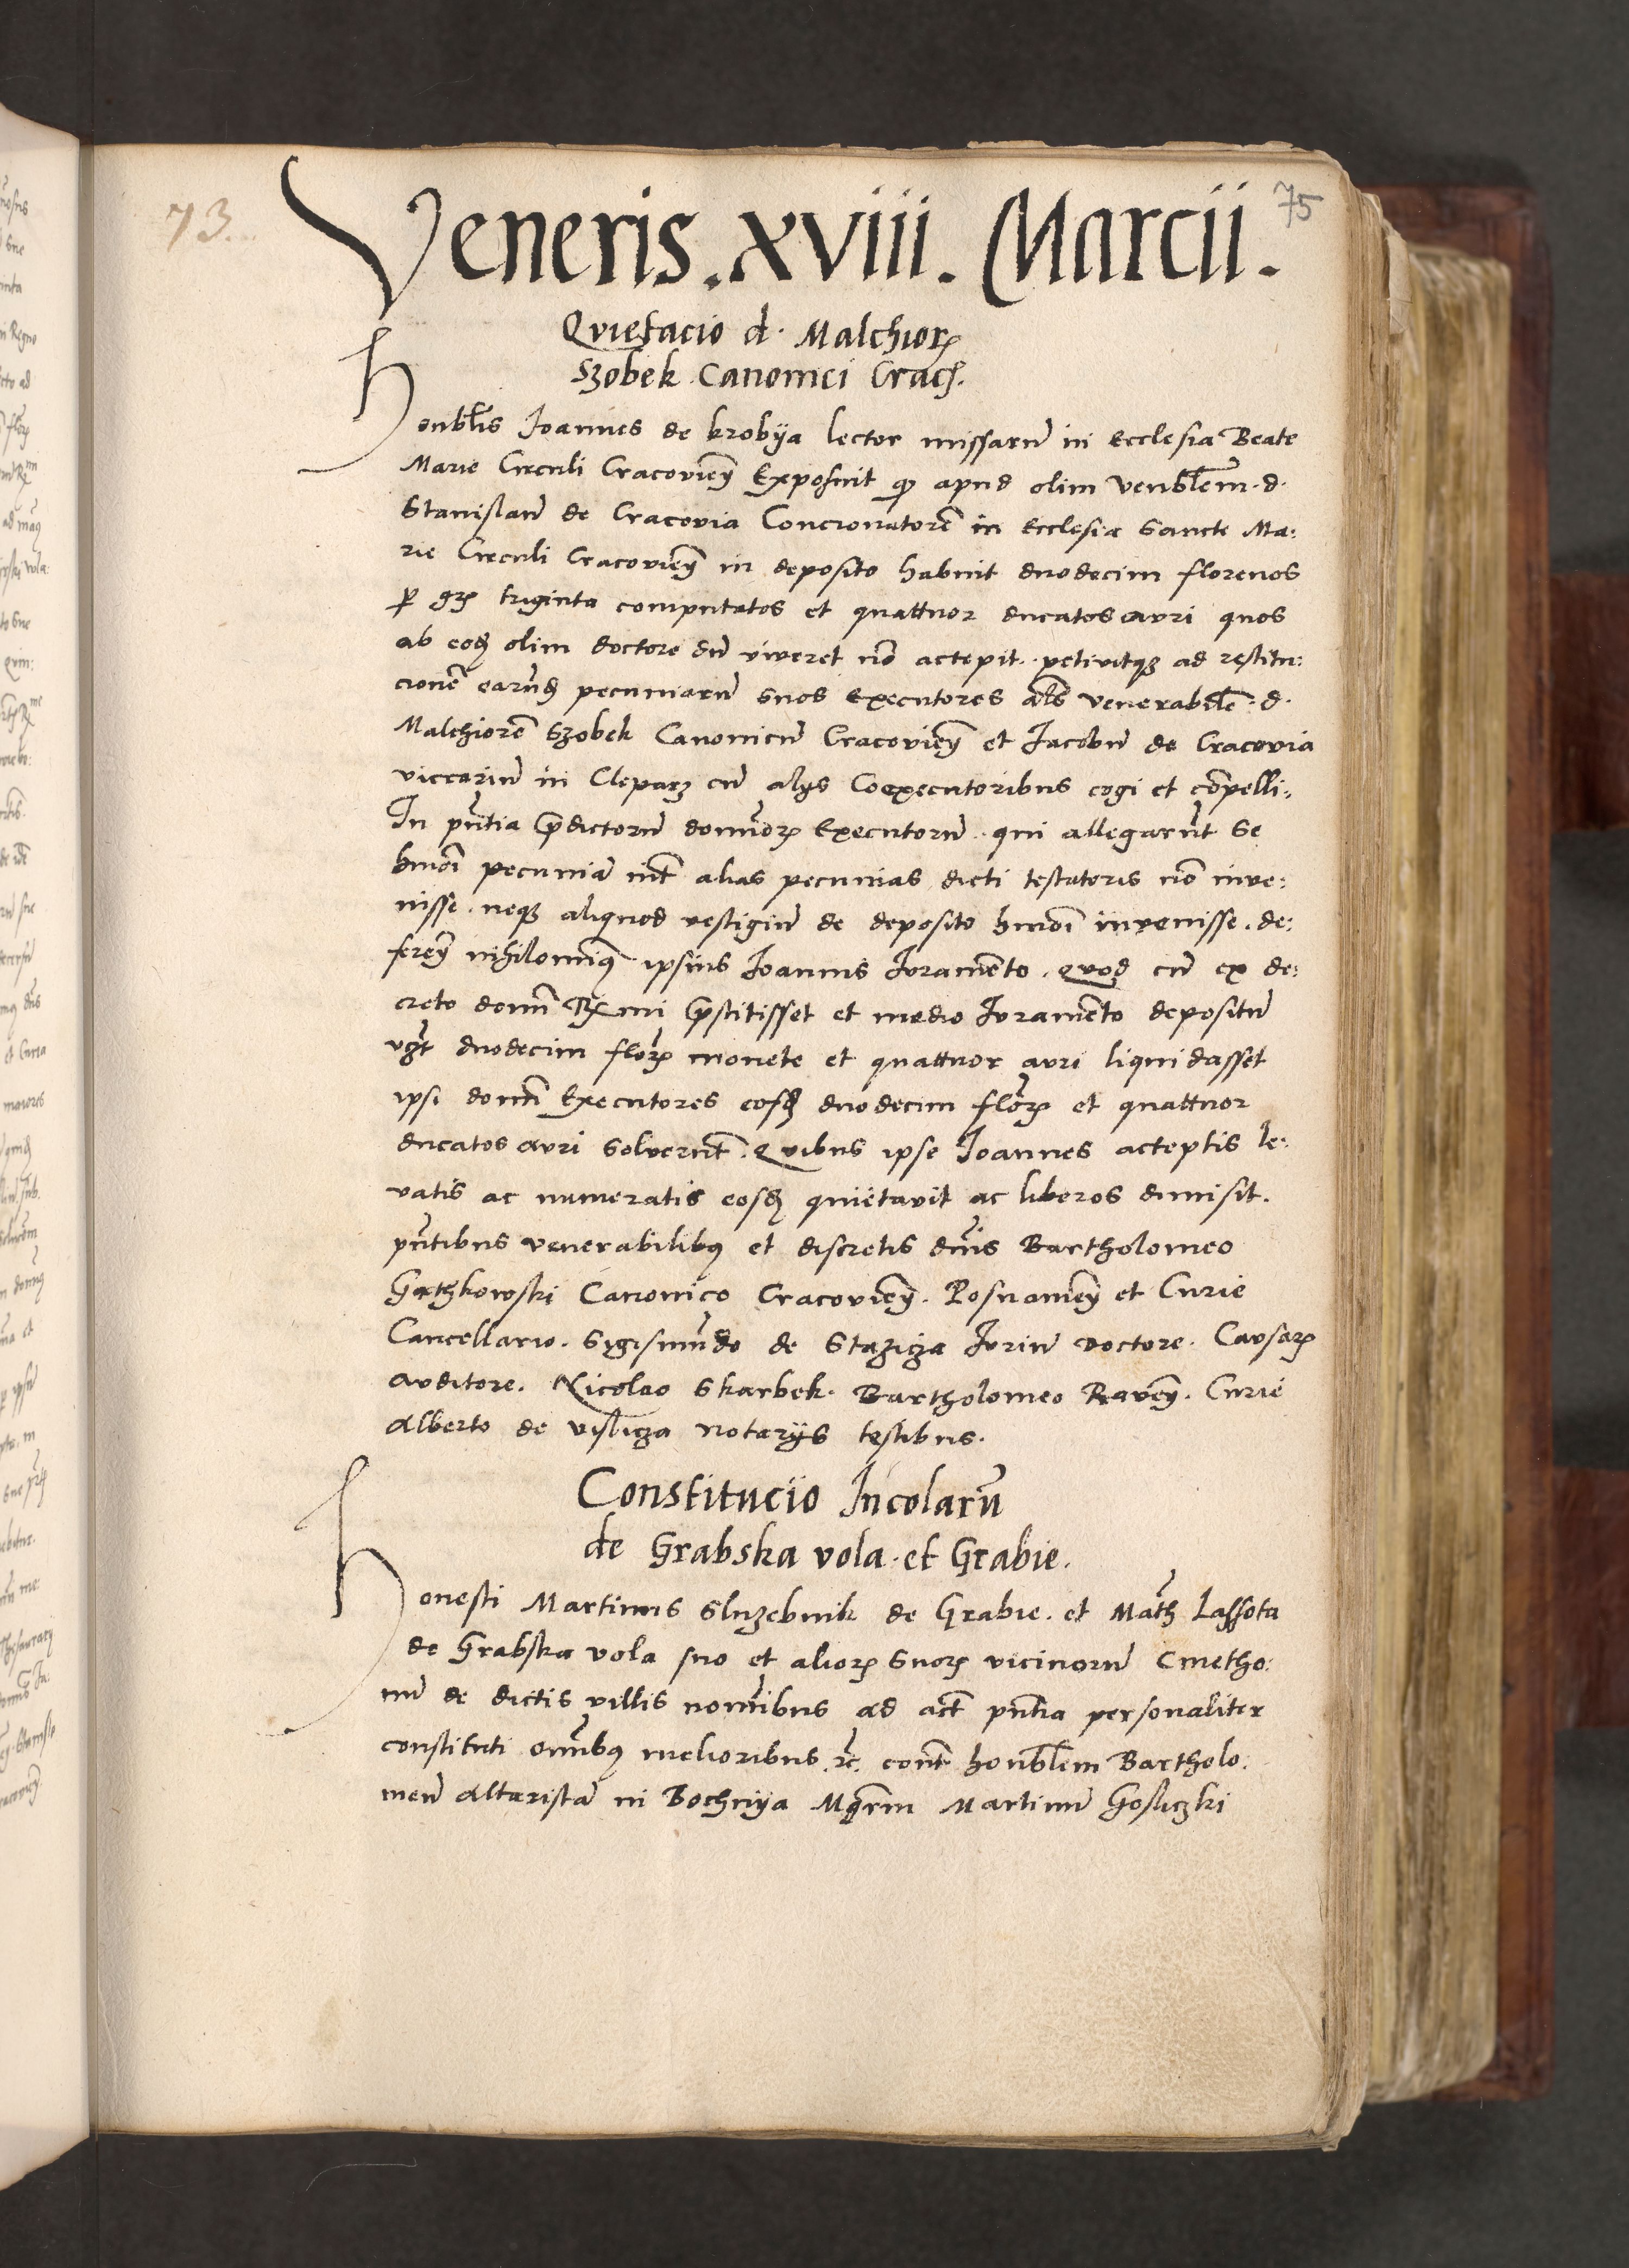 73
75
Veneris. xviii. Marcii.
Quietacio d. Malchiorꝭ
Szobek Canonici Crac̃.
Honbl̃is Joannes de krobÿa lector missarũ in Ecclesia Beate
Marie Circuli Cracovieñ Exposuit ꝙ apud olim Venbl̃em. d.
Stanislaũ de Cracovia Concionatorẽ in Ecclesia Sancte Ma:
rie Circuli Cracovieñ in deposito habuit duodecim florenos
ꝑ grꝭ triginta computatos et quattuor ducatos auri quos
ab eodẽ olim doctore dũ viveret nõ accepit. petivitqꝫ ad restitu:
cionẽ earũdẽ pecuniarũ suos Executores al̃s venerabilẽ. d.
Malchiorẽ Szobek Canonicũ Cracovieñ et Jacobũ de Cracovia
viccariũ in Cleparz cũ alÿs Coexecutoribus cogi et cõpelli.
In pñtia p̃dictorũ domĩorꝭ Executorũ. qui allegarũt se
hmõi pecuniã int̃ alias pecunias dicti testatoris nõ inve:
nisse. neqꝫ aliquod vestigiũ de deposito hmõi invenisse. de:
fereñ nihilominꝯ ipsius Joannis Juramento. Quod cũ ex de:
creto domĩ R̃mi p̃stitisset et medio Juramẽto depositũ
vz̃ duodecim florꝭ monete et quattuor auri liquidasset
ipsi domĩ Executores eosdẽ duodecim florꝭ et quattuor
ducatos auri solverũt. Quibus ipse Joannes acceptis le:
vatis ac numeratis eosdẽ quietavit ac liberos dimisit.
pñtibus venerabilibꝯ et discretis dñis Bartholomeo
Gathkowski Canonico Cracovieñ. Posnanieñ et Curie
Cancellario. Sigismũdo de Stazicza Juriũ doctore. Causarꝭ
auditore. Nicolao Skarbek. Bartholomeo Raveñ. Curie
Alberto de vislicza notarÿs testibus.
Constitucio Incolarũ
de Grabska vola et Grabie.
Honesti Martinus Sluzebnik de Grabie. et Math̃ Lassota
de Grabska vola suo et aliorꝭ suorꝭ vicinorũ Cmetho:
nũ de dictis villis nomĩbus ad act̃ pñtia personaliter
constituti om̃ibꝯ melioribus ꝛc̃. cont̃ honbl̃em Bartholo:
meũ altaristã in Bochnÿa Mgr̃m Martinũ Gosliczki